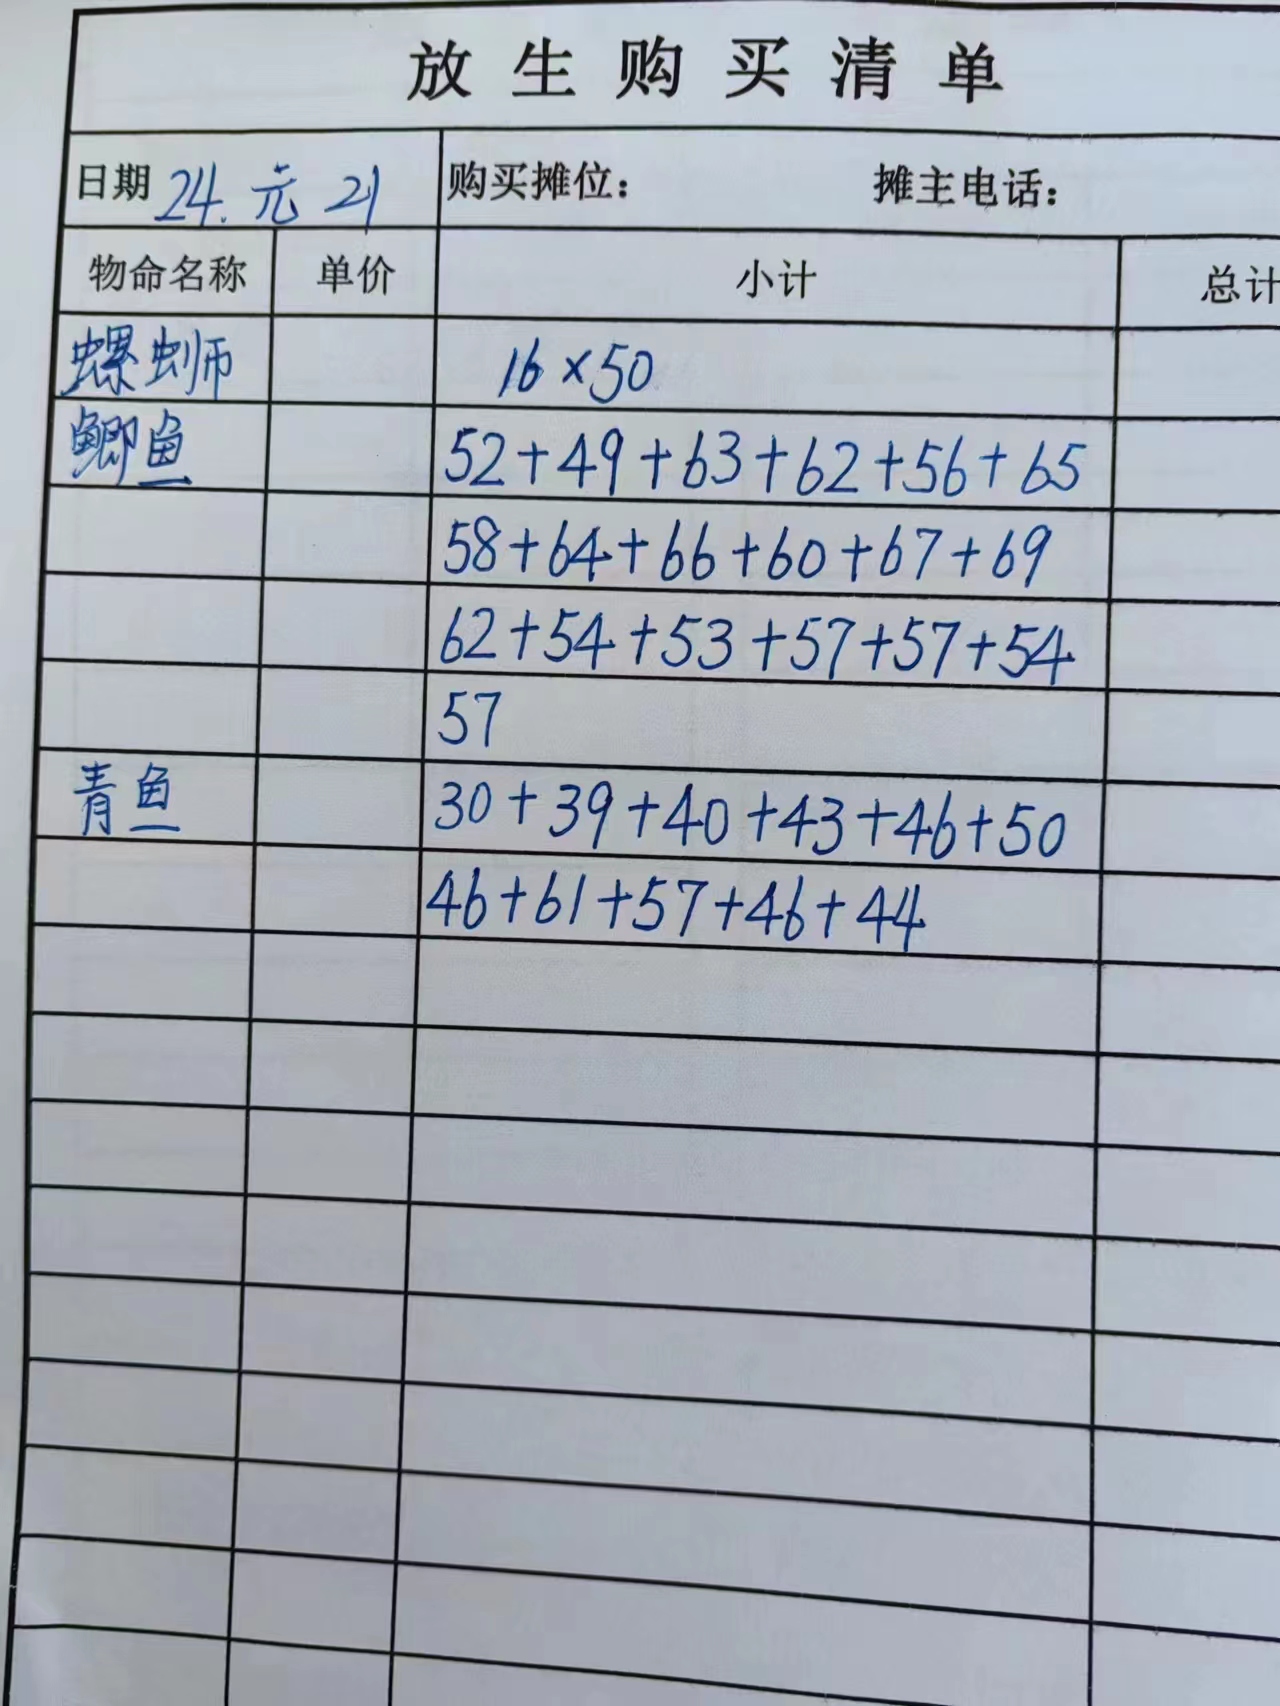 放生购买清单
日期 24.元21 购买摊位： 摊主电话：
物命名称 单价 小计 总计
螺蛳 16×50
鲫鱼 52+49+63+62+56+65
58+64+66+60+67+69
62+54+53+57+57+54
57
青鱼 30+39+40+43+46+50
46+61+57+46+44